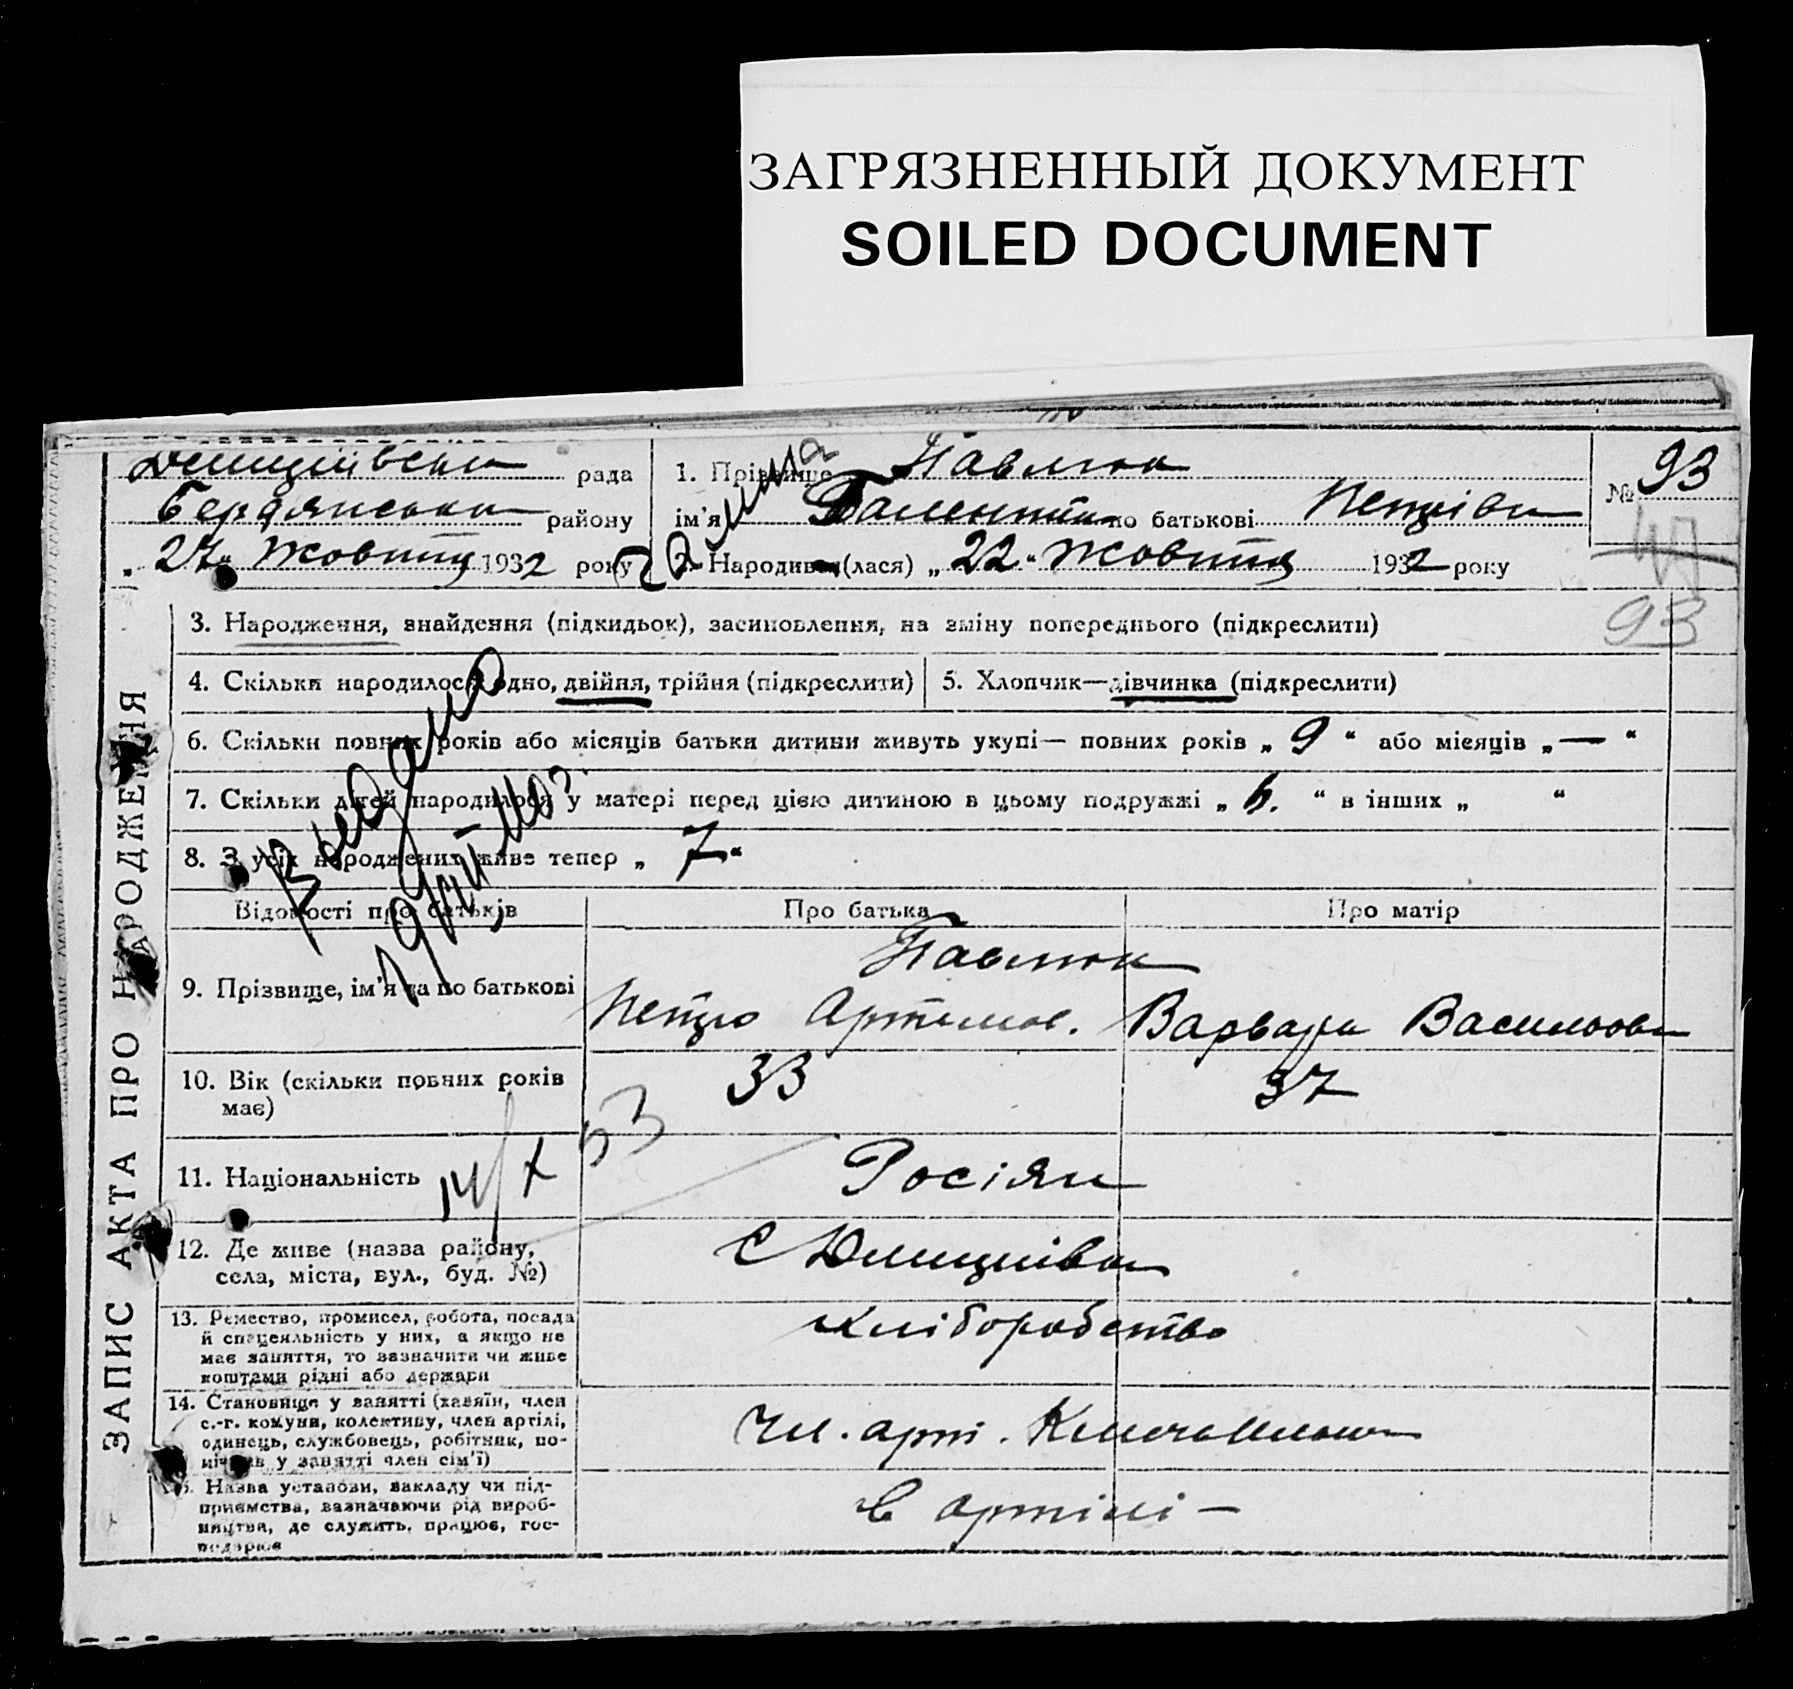 ЗАГРЯЗНЕННЫЙ ДОКУМЕНТ
SOILED DOCUMENT
рада
Бердянська району
„27“ жовтня 1932 року
1. Прізвище Павлюк
ім'я Валентина по батькові Петрівна
2. Народився (лася) „22“ жовтня 1932 року
№ 93
93
ЗАПИС АКТА ПРО НАРОДЖЕННЯ
3. Народження, знайдення (підкидьок), засиновлення, на зміну попереднього (підкреслити)
4. Скільки народилося одно, двійня, трійня (підкреслити)
5. Хлопчик—дівчинка (підкреслити)
6. Скільки повних років або місяців батьки дитини живуть укупі— повних років „ 9 “ або місяців „ — “
7. Скільки дітей народилося у матері перед цією дитиною в цьому подружжі „ 6. “ в інших „ “
8. З усіх народжених живе тепер „ 7 “
Відомості про батьків
Про батька
Про матір
9. Прізвище, ім'я та по батькові
Павлюк
Петро Артемов.
Варвара Василівна
10. Вік (скільки повних років має)
33
37
11. Національність
Росіяни
12. Де живе (назва району,
села, міста, вул., буд. №)
13. Ремество, промисел, робота, посада
й спецеяльність у них, а якщо не
має заняття, то зазначити чи живе
коштами рідні або держави
хліборобство
14. Становище у занятті (хазяїн, член
с.-г. комуни, колективу, член артілі,
одинець, службовець, робітник, по-
мічник у занятті член сім'ї)
Чл. арт.
15. Назва установи, закладу чи під-
приємства, зазначаючи рід вироб-
ництва, де служить, працює, гос-
подарює
в артілі —